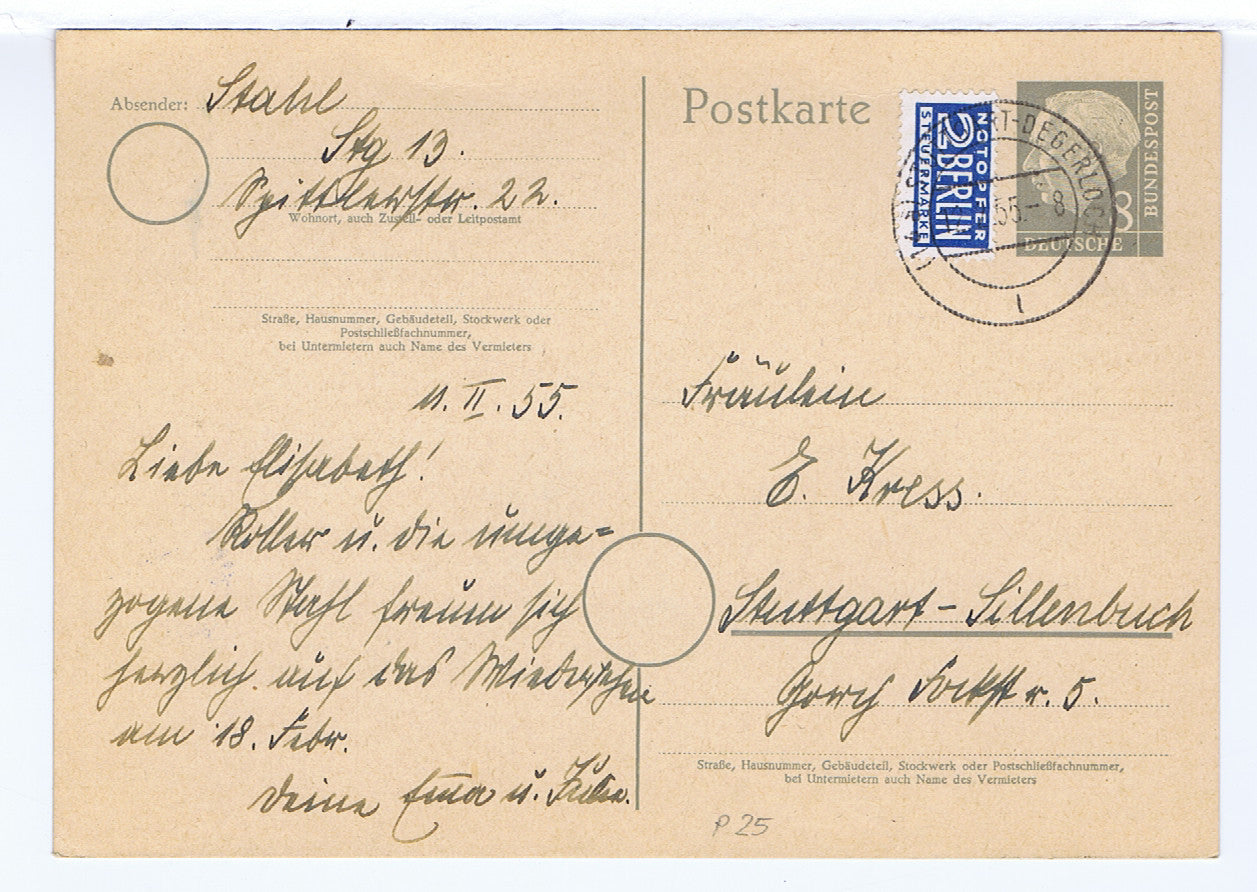 Absender: Stahl
Stg 13.
Spittlerstr. 22.
Wohnort, auch Zustell- oder Leitpostamt
Straße, Hausnummer, Gebäudeteil, Stockwerk oder
Postschließfachnummer,
bei Untermietern auch Name des Vermieters
11. II. 55.
Liebe Elisabeth!
Koller u. die umge=
zogene Stahl freuen sich
herzlich auf das Wiedersehen
am 18. Febr.
Deine Emma u.
Postkarte
NOTOPFER
2 BERLIN
STEUERMARKE
STUTTGART-DEGERLOCH
55.- 8
1
8
DEUTSCHE
BUNDESPOST
Fräulein
E. Kress.
Stuttgart - Sillenbuch
Gorch Fockstr. 5.
Straße, Hausnummer, Gebäudeteil, Stockwerk oder Postschließfachnummer,
bei Untermietern auch Name des Vermieters
P 25